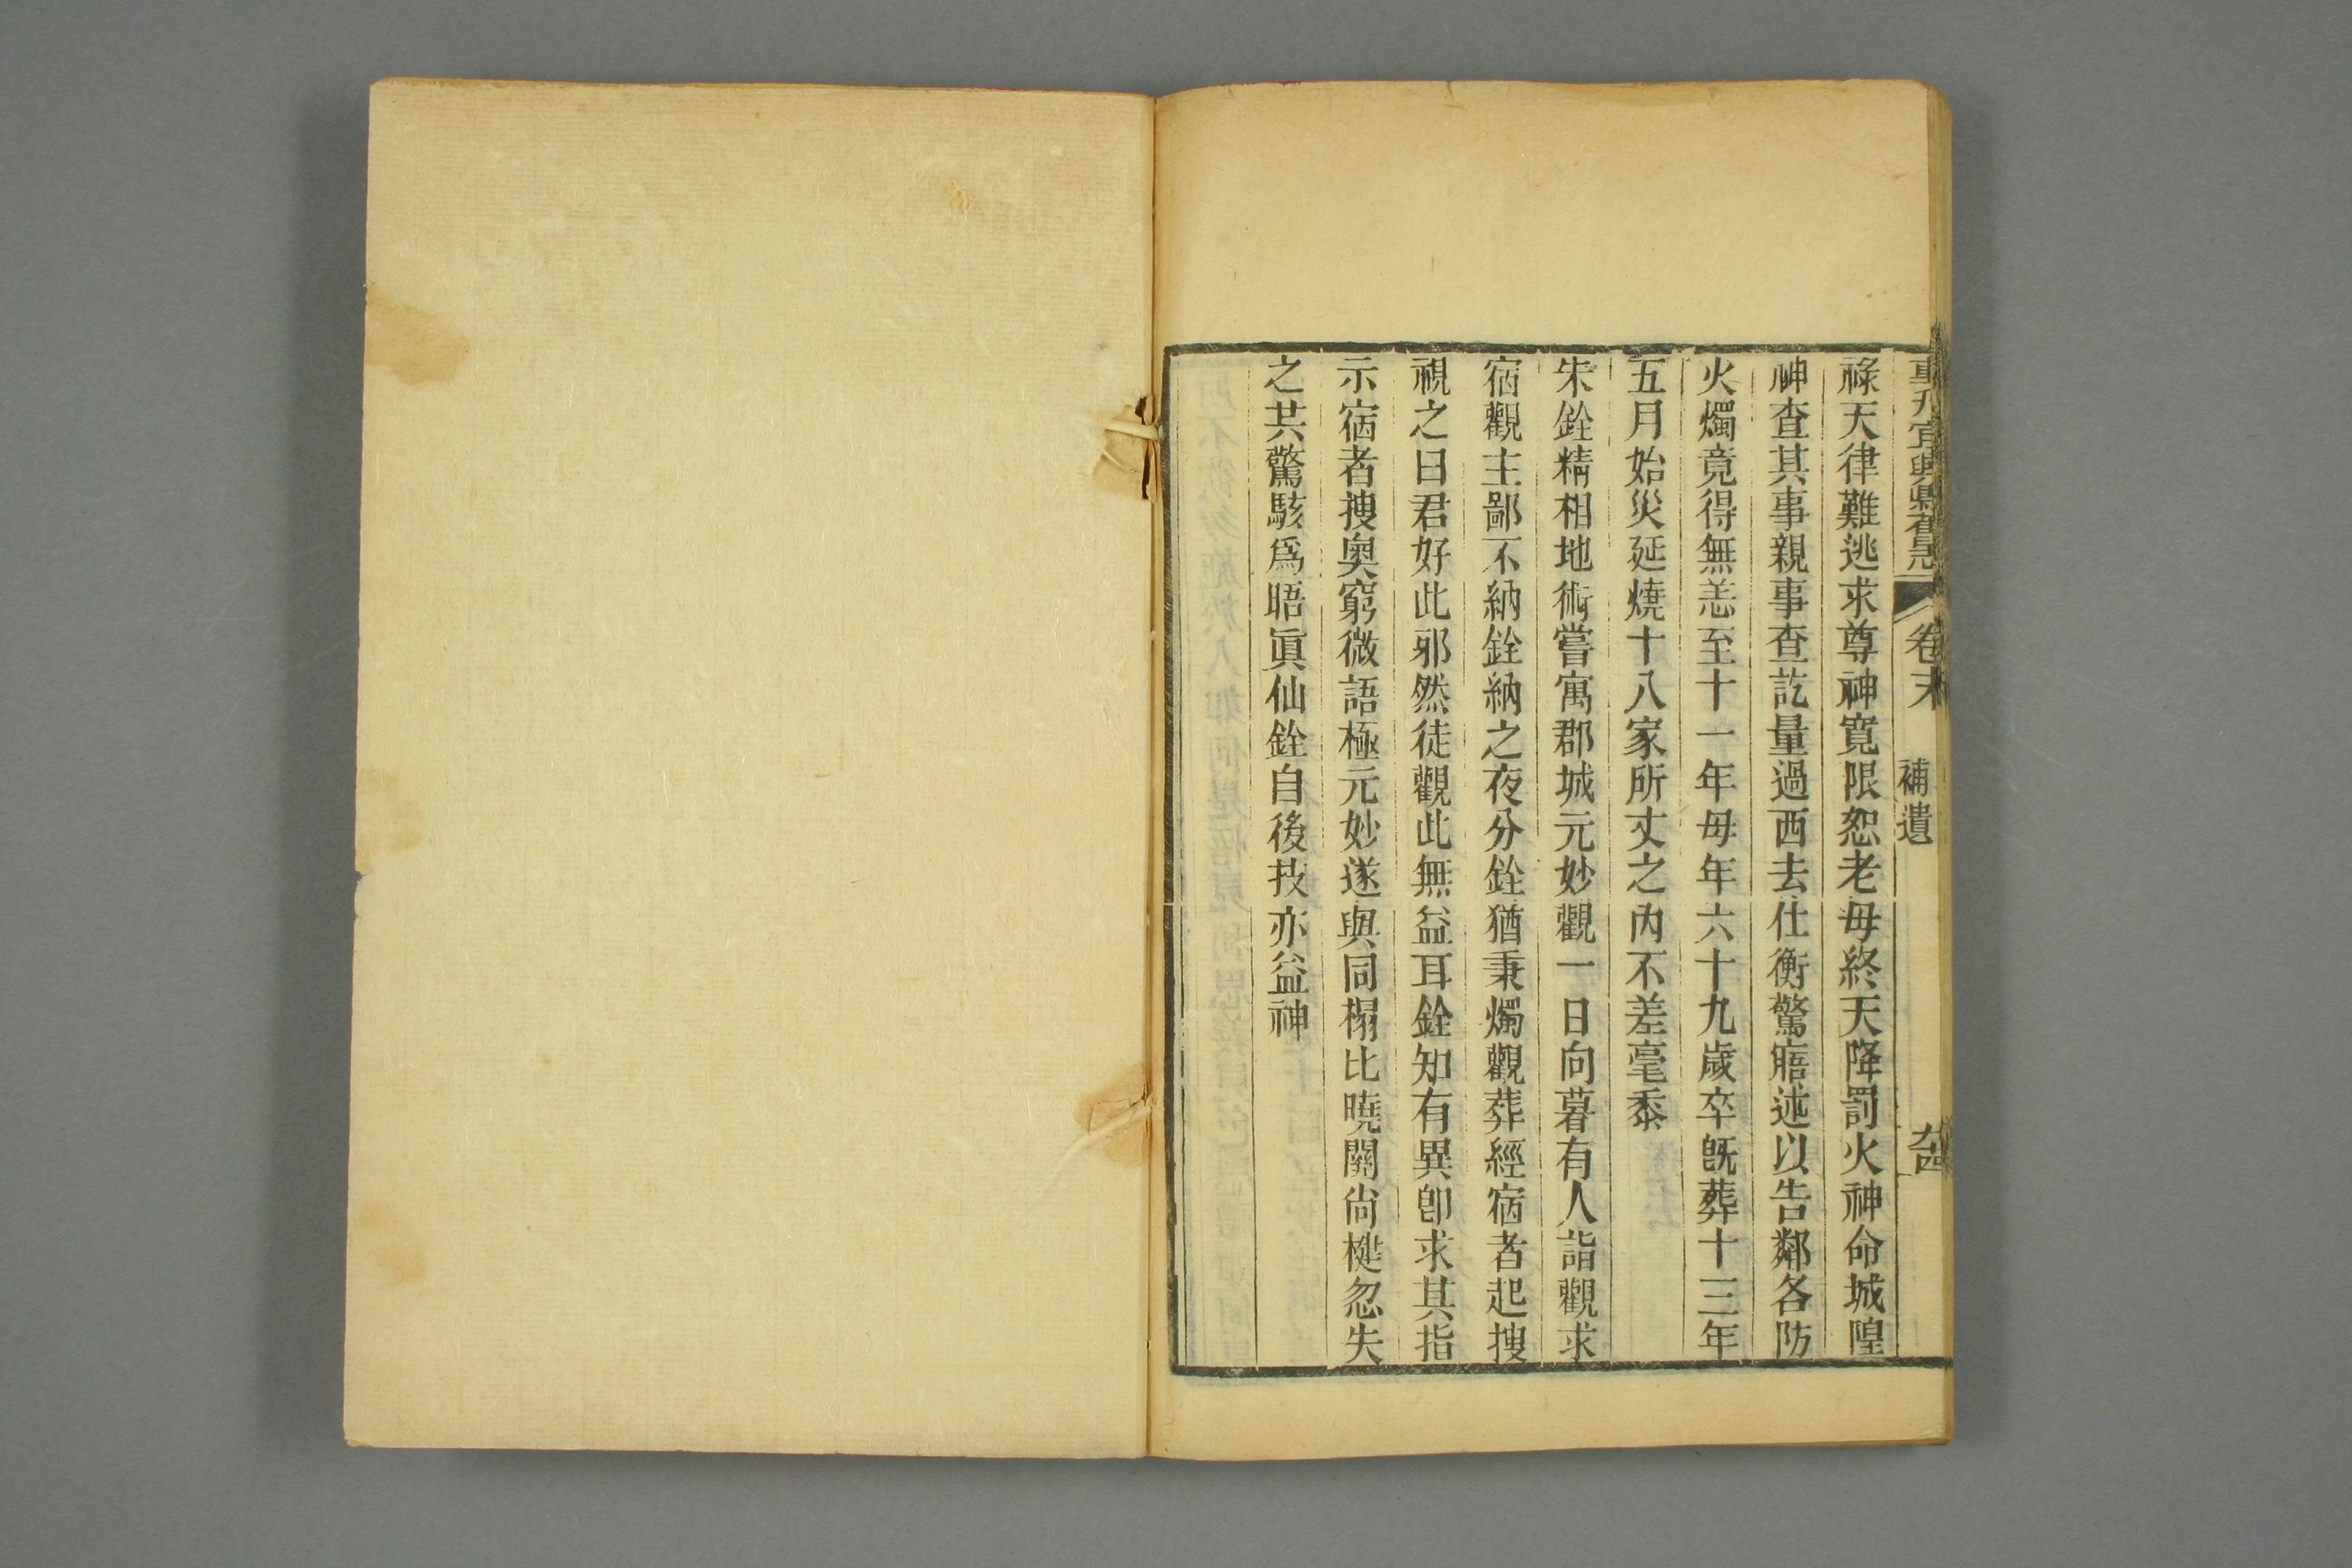 重刋宜興縣舊志 卷末 補遺 卆四
祿天律難逃求尊神寬限恕老毋終天降罰火神命城隍
神查其事親事查訖量過西去仕衡驚寤述以告鄰各防
火燭竟得無恙至十一年毋年六十九歲卒旣葬十三年
五月始災延燒十八家所丈之內不差毫黍
朱銓精相地術嘗寓郡城元妙觀一日向暮有人詣觀求
宿觀主鄙不納銓納之夜分銓猶秉燭觀葬經宿者起搜
視之曰君好此邪然徒觀此無益耳銓知有異卽求其指
示宿者搜奧窮微語極元妙遂與同榻比曉關尙楗忽失
之共驚駭爲晤眞仙銓自後技亦益神